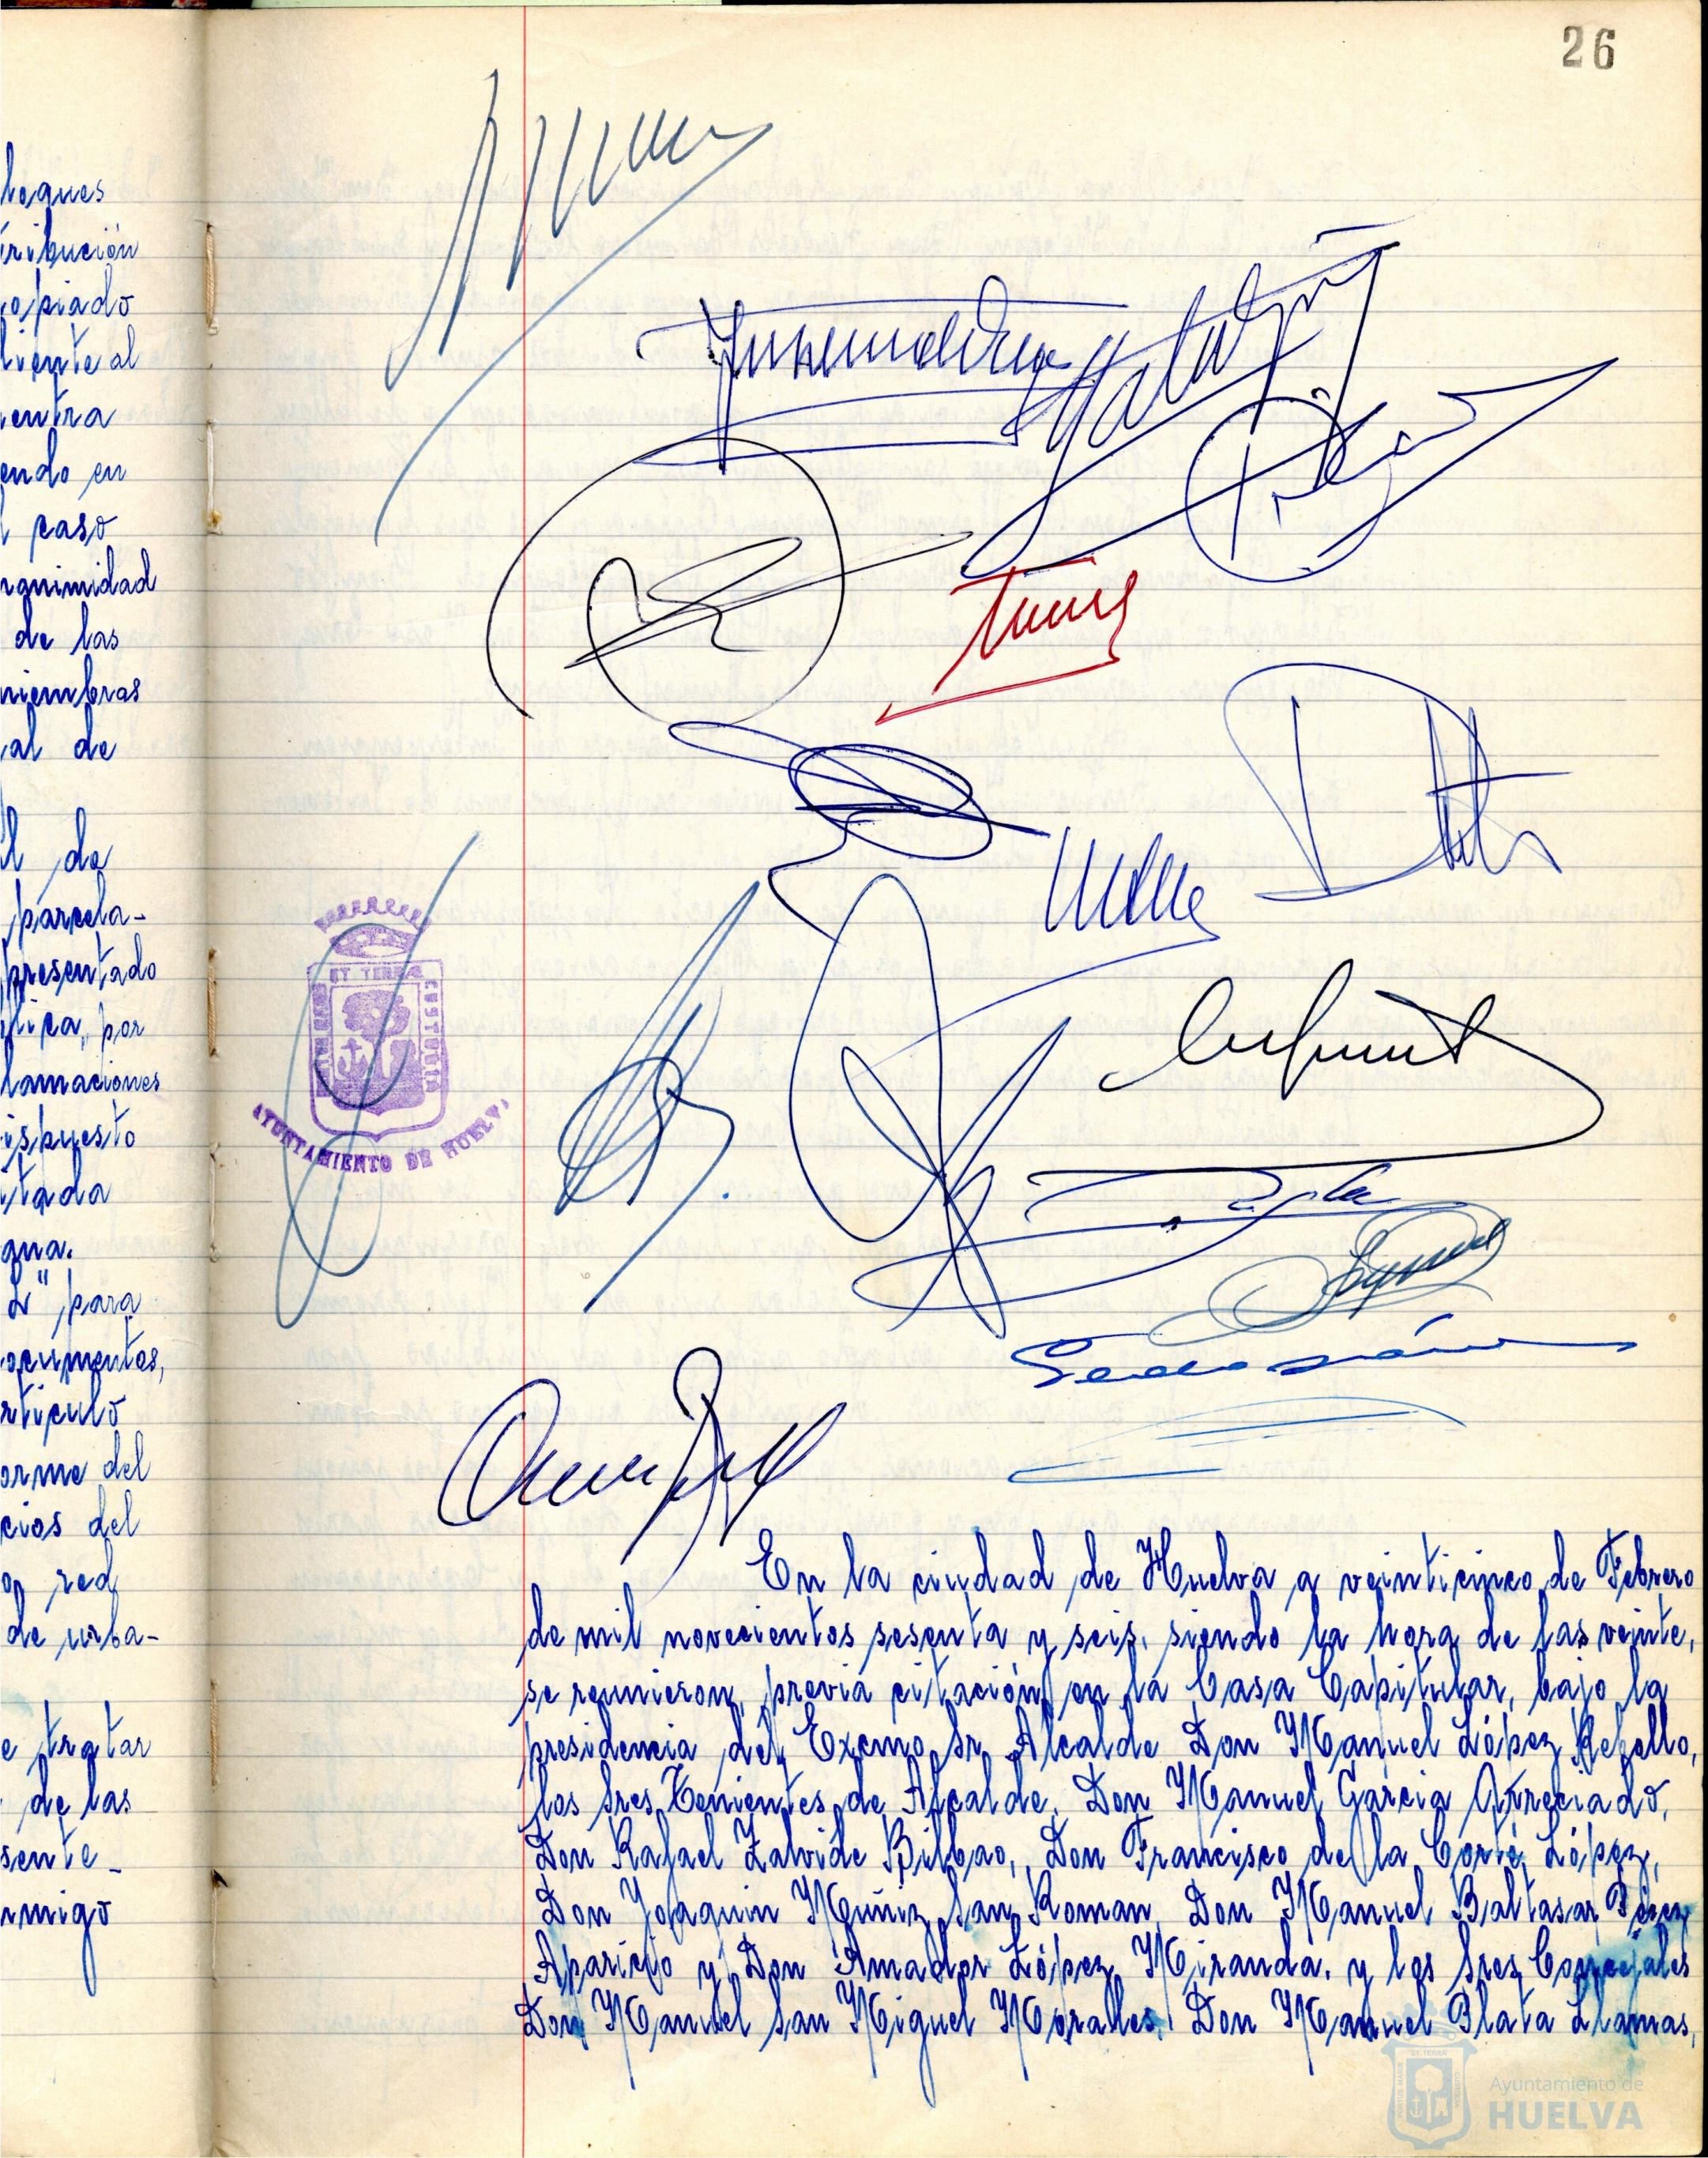 26
loques
tribución
copiado
liente al
entra
endo en
caso
nanimidad
de las
miembros
al de
l de
parcela-
presentado
por
lamaciones
ispuesto
itada
gua.
L" para
ocumentos,
rtículo
orme del
cios del
red
de urba-
e tratar
de las
sente-
nmigo
ET TERRAE CUSTODIA
AYUNTAMIENTO DE HUELVA
En la ciudad de Huelva a veinticinco de Febrero
de mil novecientos sesenta y seis, siendo la hora de las veinte,
se reunieron, previa citación, en la Casa Capitular, bajo la
presidencia del Excmo. Sr. Alcalde Don Manuel López Rebollo,
los Sres. Tenientes de Alcalde, Don Manuel García Apreciado,
Don Rafael Zalvide Bilbao, Don Francisco de la Corte López,
Don Joaquin Muñiz San Roman, Don Manuel Baltasar Pérez
Aparicio y Don Amador López Miranda, y los Sres. Concejales
Don Manuel San Miguel Morales, Don Manuel Plata Llamas,
Ayuntamiento de
HUELVA